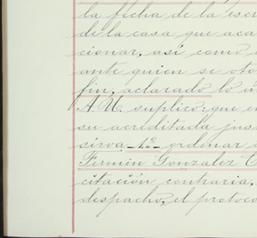 la fecha de la escri
de la casa que aca
cionar, así como
ante quien se oto
fin, aclarado lo
A U. suplico, que en
su acreditada jus
sirva 1º ordenar
Fermin Gonzalez
citación contraria,
despacho, el protoco